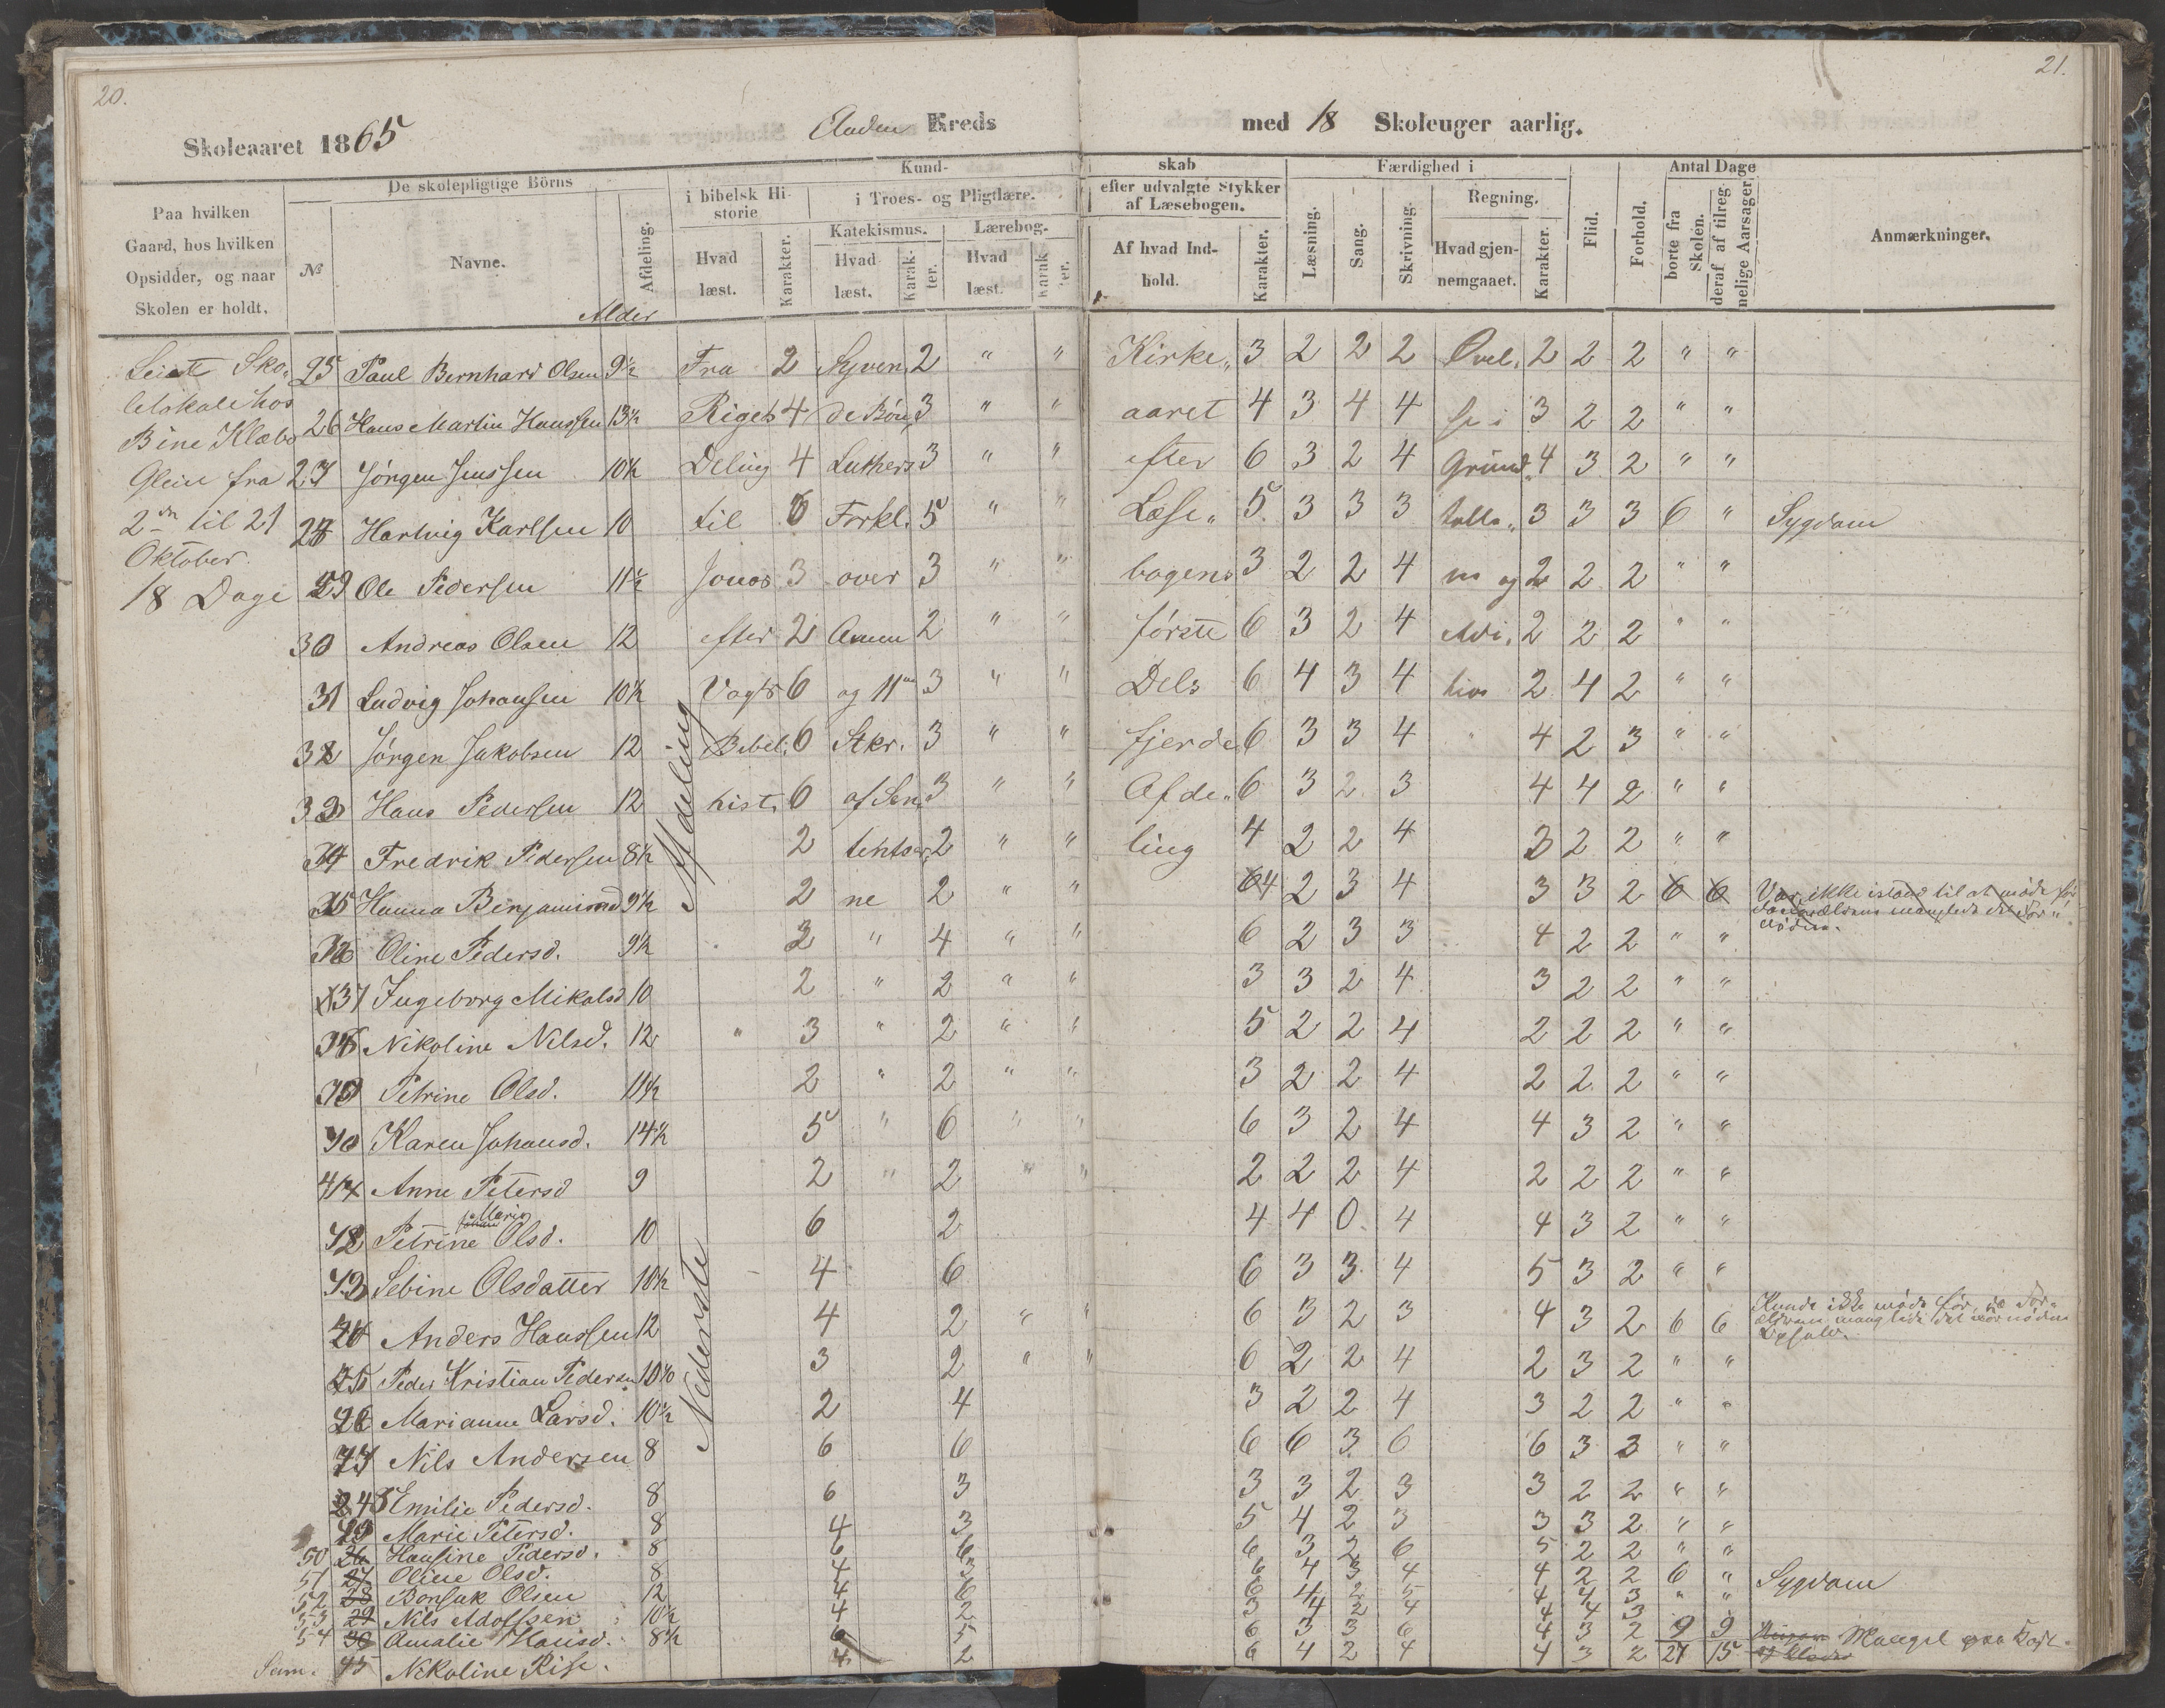 20.
21.
Skoleaaret 1865 Anden Kreds med 18 Skoleuger aarlig.
De skolepligtige Börns Kund- skab Færdighed i Antal Dage
Paa hvilken Gaard, hos hvilken Opsidder, og naar Skolen er holdt.
№ Navne. Afdeling. Alder
i bibelsk Hi-storie Hvad læst. Karakter.
i Troes- og Pligtlære.
Katekismus. Hvad læst. Karak-ter.
Lærebog. Hvad læst. Karak ter.
efter udvalgte Stykker af Læsebogen.
Af hvad Ind-hold. Karakter.
Læsning. Sang. Skrivning.
Regning. Hvad gjen-nemgaaet. Karakter.
Flid. Forhold.
borte fra Skolen. deraf af tilreg-nelige Aarsager
Anmærkninger.
Leiet Sko-
lelokale hos
Bine Klæbo
Glein fra
2den til 21
Oktober.
18 Dage
25 Paul Bernhard Olsen 9½ Fra 2 Syven 2 " " Kirke„ 3 2 2 2 Øvel. 2 2 2 " "
26 Hans Martin Hanssen 13½ Rigets 4 de Bön 3 " " aaret 4 3 4 4 se i 3 2 2 " "
27 Jörgen Jenssen 10½ Deling 4 Luthers 3 " " efter 6 3 2 4 Grund„ 4 3 2 " "
28 Hartvig Karlsen 10 til 6 Forkl. 5 " " Læse„ 5 3 3 3 talle„ 3 3 3 6 " Sygdom
29 Ole Pedersen 11½ Jonas 3 over 3 " " bogens 3 2 2 4 ne og 2 2 2 " "
30 Andreas Olsen 12 efter 2 Amen 2 " " förste 6 3 2 4 Adi. 2 2 2 " "
31 Ludvig Johansen 10½ Vogts 6 og 11te 3 " " Dels 6 4 3 4 tion 2 4 2 " "
32 Jörgen Jakobsen 12 Bibel. 6 Stkr. 3 " " fjerde 6 3 3 4 " 4 2 3 " "
33 Hans Pedersen 12 hist. 6 af Sen 3 " " Afde„ 6 3 2 3 4 4 2 " "
34 Fredrik Pedersen 8½ 2 tentser 2 " " ling 4 2 2 4 3 2 2 " "
35 Hanna Benjaminsd 9½ 2 ne 2 " " 6 4 2 3 4 3 3 2 6 6 Var ikke istand til at møde för
36 Oline Pedersd. 9½ 2 " 4 " " 6 2 3 3 4 2 2 " "
37 Ingeborg Mikalsd 10 2 " 2 " " 3 3 2 4 3 2 2 " "
38 Nikoline Nilsd. 12 " 3 " 2 " " 5 2 2 4 2 2 2 " "
39 Petrine Olsd. 11½ 2 " 2 " " 3 2 2 4 2 2 2 " "
40 Karen Johansd. 14½ 5 " 6 " " 6 3 2 4 4 3 2 " "
41 Anne Petersd 9 2 " 2 " " 2 2 2 4 2 2 2 " "
Maria
42 Petrine Olsd. 10 6 2 4 4 0 4 4 3 2 " "
43 Sebine Olsdatter 10½ 4 6 6 3 3 4 5 3 2 " "
44 Anders Hanssen 12 4 2 " " 6 3 2 3 4 3 2 6 6 Kunde ikke møde för, da For-
ældrene manglede det nødne
45 Peder Kristian Pedersen 10 3 2 " " 6 2 2 4 2 3 2 " "
46 Marianne Larsd. 10½ 2 4 3 2 2 4 3 2 2 " "
47 Nils Andersen 8 6 6 6 6 3 6 6 3 3 " "
48 Emilie Pedersd. 8 6 3 3 3 2 3 3 2 2 " "
49 Marie Petersd. 8 4 3 5 4 2 3 3 3 2 " "
50 26 Hansine Pedersd. 8 6 6 6 3 2 6 5 2 2 " "
51 27 Oline Olsd. 8 4 3 6 4 3 4 4 2 2 6 " Sygdom
52 28 Bonsak Olsen 12 4 6 6 4 2 5 4 4 3 " "
53 29 Nils Adolfsen 10½ 4 2 3 4 2 4 4 4 3
54 30 Amalie Hansd. 8½ 6 5 6 3 3 6 4 3 2 9 9 Mangel paa
Sum. 45 Nikoline Rise. 4 2 6 4 2 4 4 3 2 27 15
Nederste Afdeling